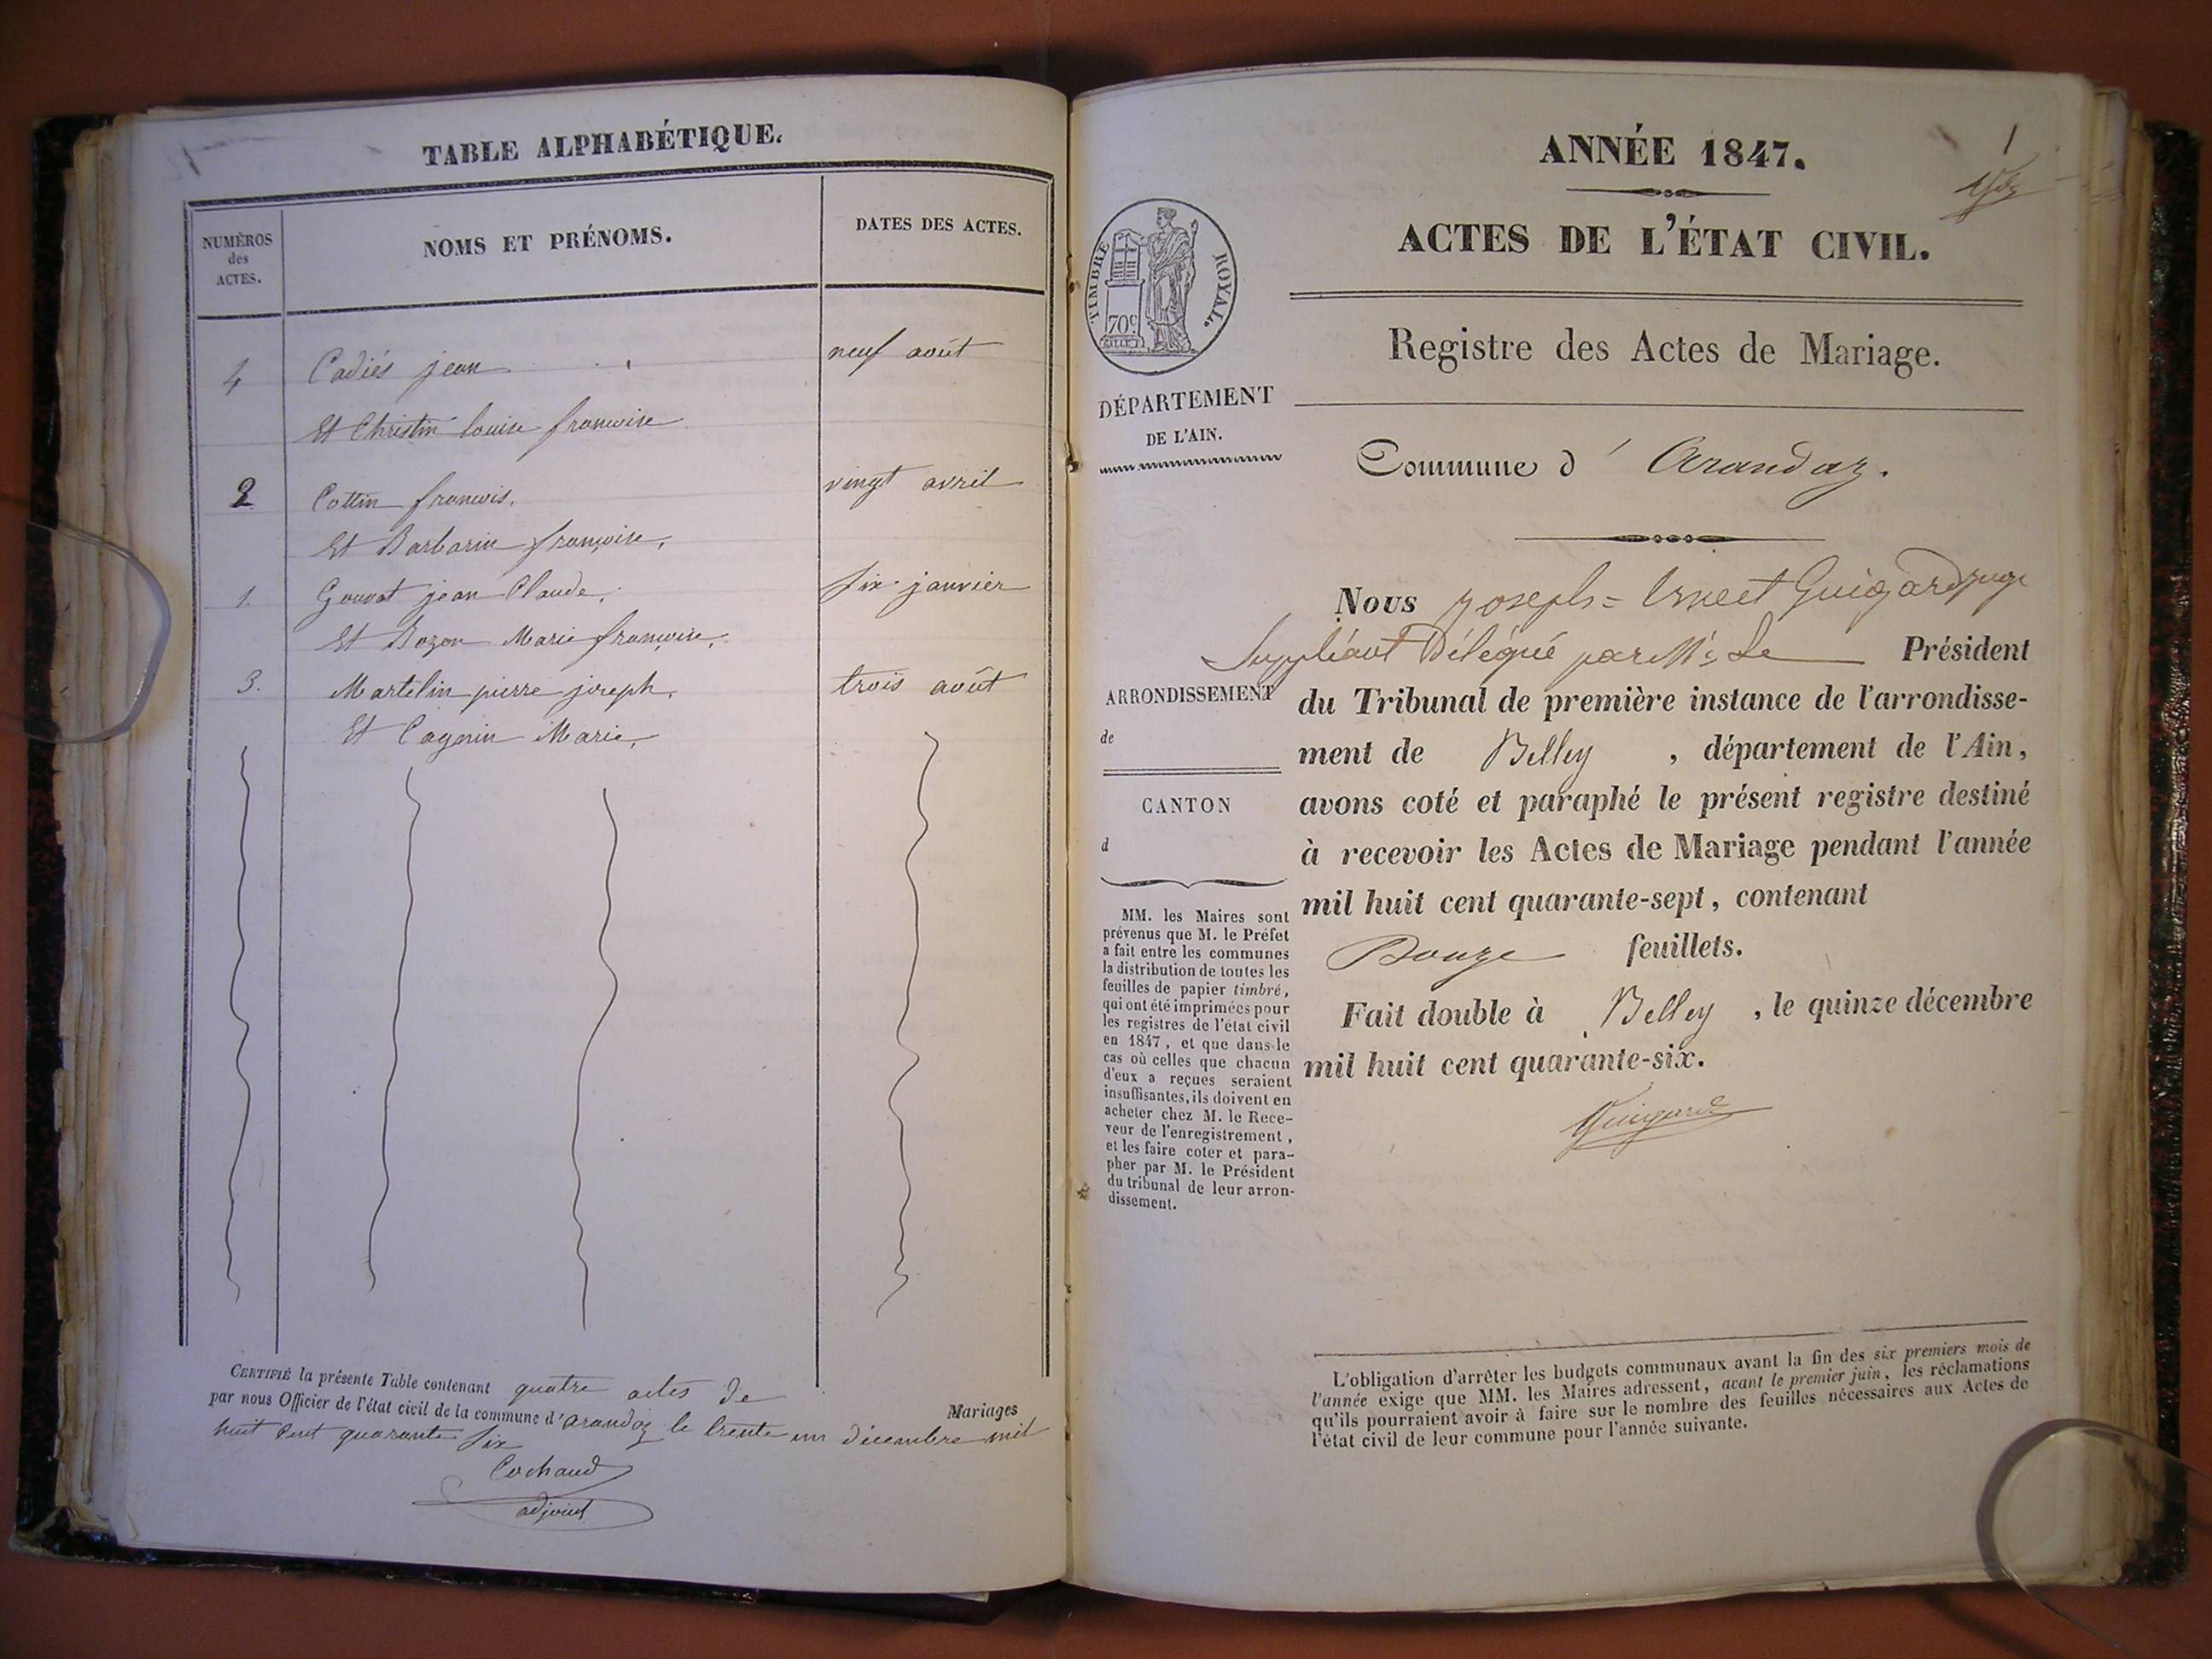 TABLE ALPHABÉTIQUE.
NUMÉROS
des
ACTES.
NOMS ET PRÉNOMS.
DATES DES ACTES.
4 Cadiés jean neuf août
Et Christin louise francoise
2 Cottin francois. vingt avril
Et Barbarin françoise,
1. Gouvat jean Claude, six janvier
Et Bozon Marie françoise,
3. Martelin pierre joseph, trois août
Et Cagnin Marie,
CERTIFIÉ la présente Table contenant quatre actes de
Mariages
par nous Officier de l'état civil de la commune d'arandaz le trente un décembre mil
huit Cent quarante six
Cochaud
adjoint
1
ANNÉE 1847.
ACTES DE L'ÉTAT CIVIL.
TIMBRE ROYAL.
70c
Registre des Actes de Mariage.
DÉPARTEMENT
DE L'AIN.
Commune d' Arandaz.
Nous joseph = Ernest Guigard juge
Suppléant Délégué par Mr Le Président
ARRONDISSEMENT
de
du Tribunal de première instance de l'arrondisse-
ment de Belley , département de l'Ain,
avons coté et paraphé le présent registre destiné
à recevoir les Actes de Mariage pendant l'année
mil huit cent quarante-sept, contenant
Douze feuillets.
Fait double à Belley , le quinze décembre
mil huit cent quarante-six.
Guigard
CANTON
d
MM. les Maires sont
prévenus que M. le Préfet
a fait entre les communes
la distribution de toutes les
feuilles de papier timbré,
qui ont été imprimées pour
les registres de l'état civil
en 1847, et que dans le
cas où celles que chacun
d'eux a reçues seraient
insuffisantes, ils doivent en
acheter chez M. le Rece-
veur de l'enregistrement,
et les faire coter et para-
pher par M. le Président
du tribunal de leur arron-
dissement.
L'obligation d'arrêter les budgets communaux avant la fin des six premiers mois de
l'année exige que MM. les Maires adressent, avant le premier juin, les réclamations
qu'ils pourraient avoir à faire sur le nombre des feuilles nécessaires aux Actes de
l'état civil de leur commune pour l'année suivante.